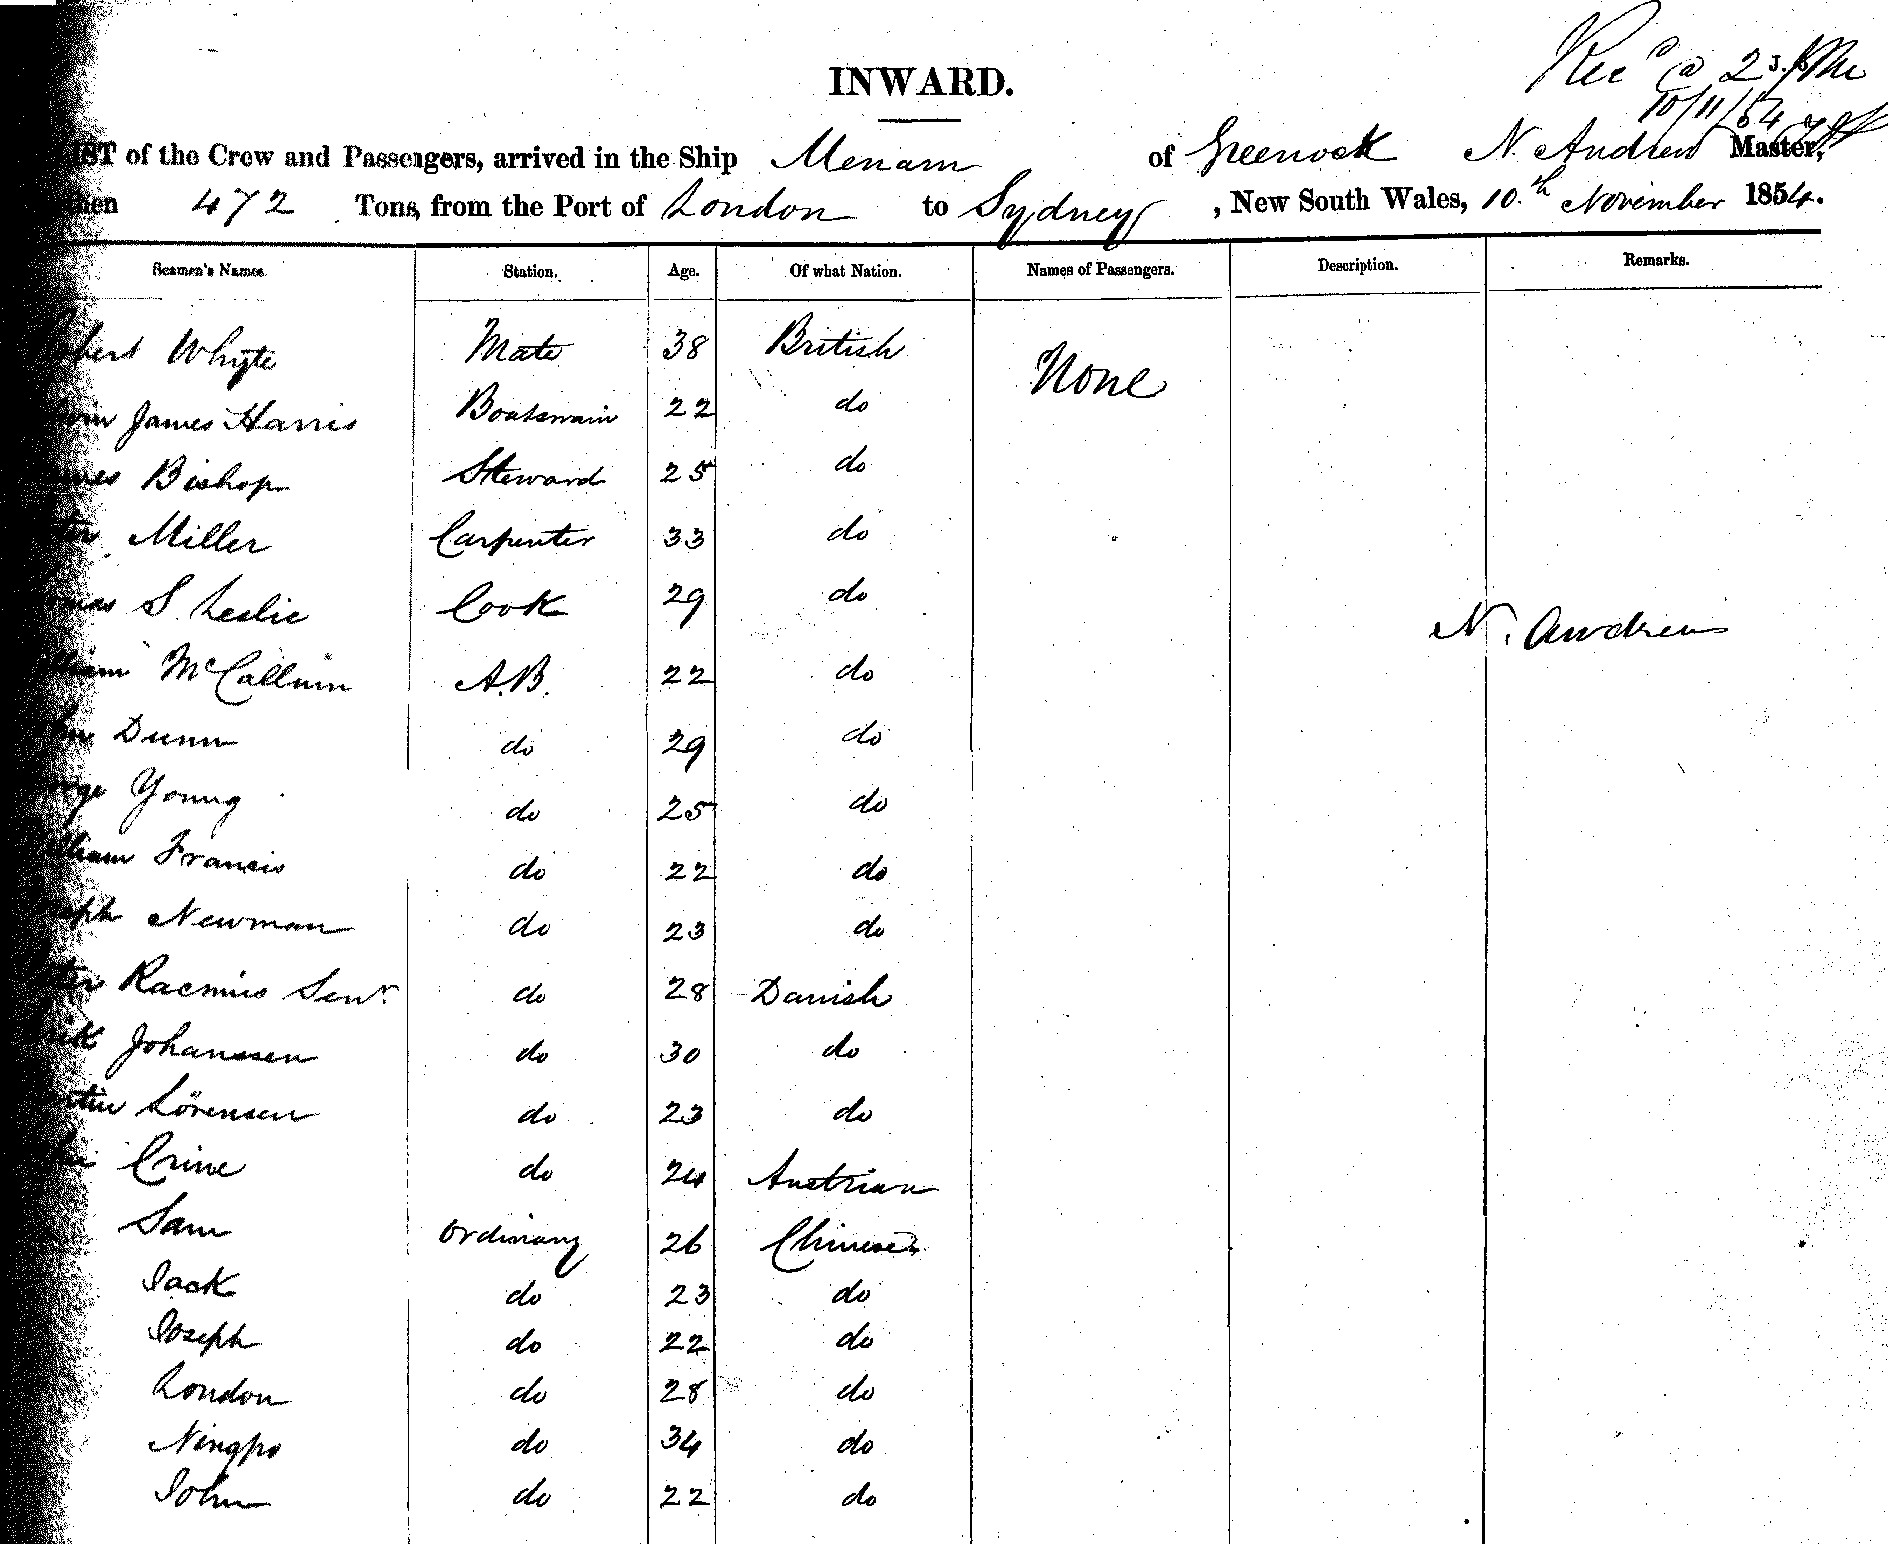 INWARD.
Rec'd @ 2
10/11/54
IST of the Crew and Passengers, arrived in the Ship Menam of Greenock N. Andrew Master,
hen 472 Tons, from the Port of London to Sydney, New South Wales, 10.th November 1854.
Seamen's Names. Station. Age. Of what Nation. Names of Passengers. Description. Remarks.
bert Whyte Mate 38 British None
James Harris Boatswain 22 do
mes Bishop Steward 25 do
Miller Carpenter 33 do
mas S. Leslie Cook 29 do
N. Andrew
liam McCallum A.B. 22 do
Dunn do 29 do
orge Young do 25 do
lliam Francis do 22 do
seph Newman do 23 do
Rasmus Senr do 28 Danish
rik Johanssen do 30 do
artin Lörensen do 23 do
Crine do 24 Austrian
Sam Ordinary 26 Chinese
Jack do 23 do
Joseph do 22 do
London do 28 do
Ningpo do 34 do
John do 22 do